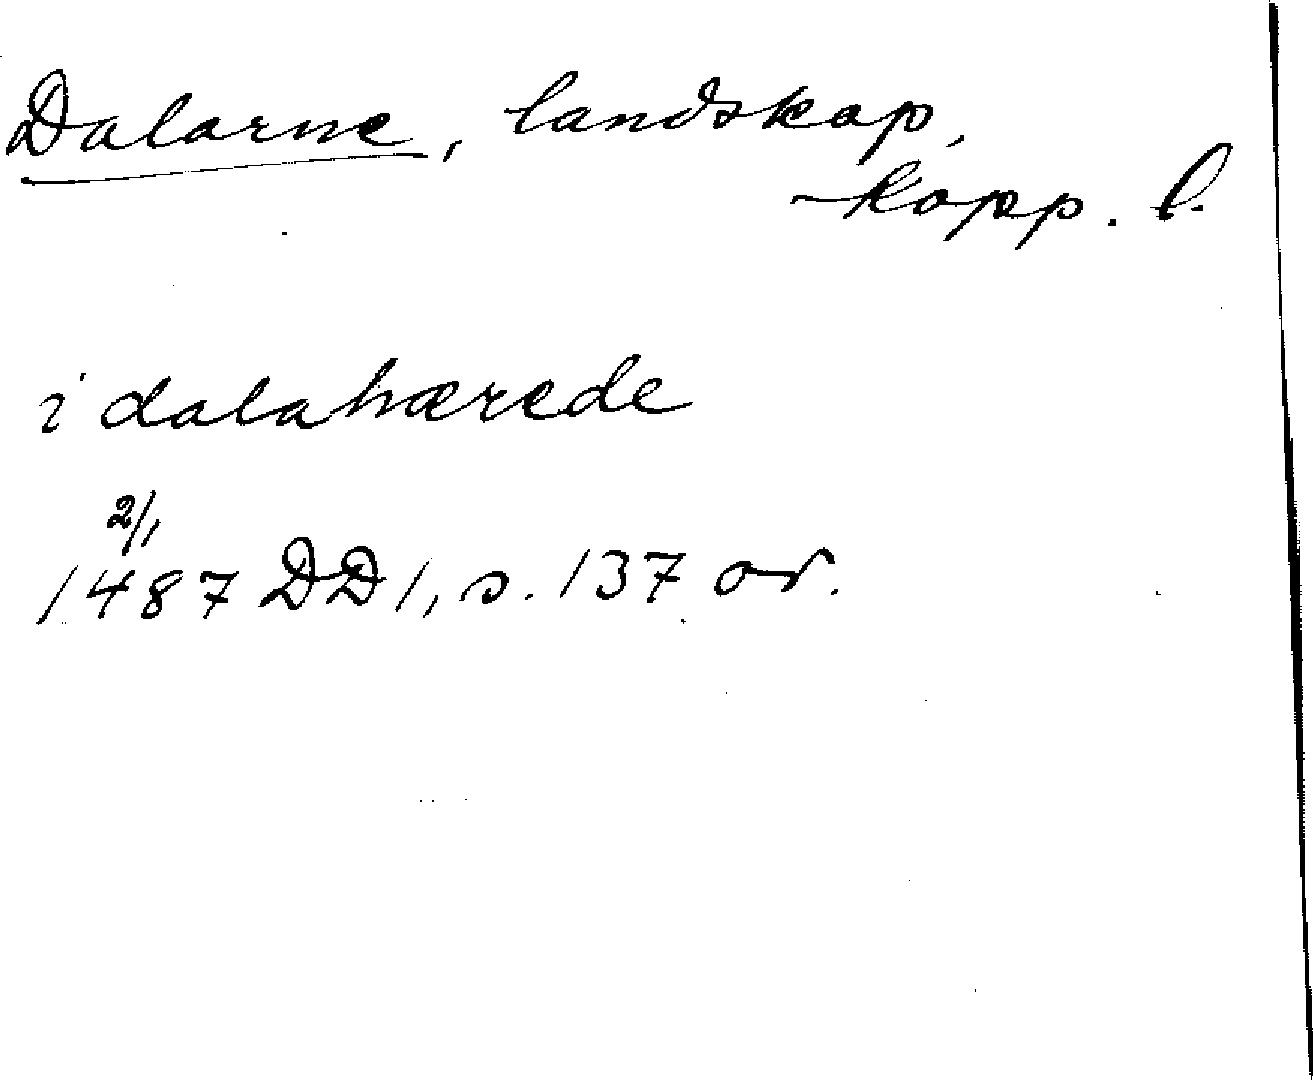 Dalarne, landskap,
Kopp. l.
i dalahærede
2/1
1487 DD 1, s. 137 or.